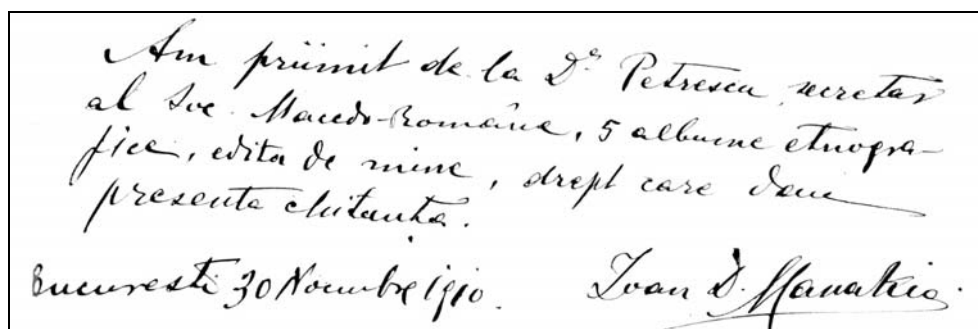 Am priimit de la Dl Petrescu, secretar
al Soc. Macedo-Române, 5 albume etnogra-
fice, edita de mine, drept care dau
presenta chitanta.
Bucuresti 30 Noembre 1910. Ioan D. Manakia.